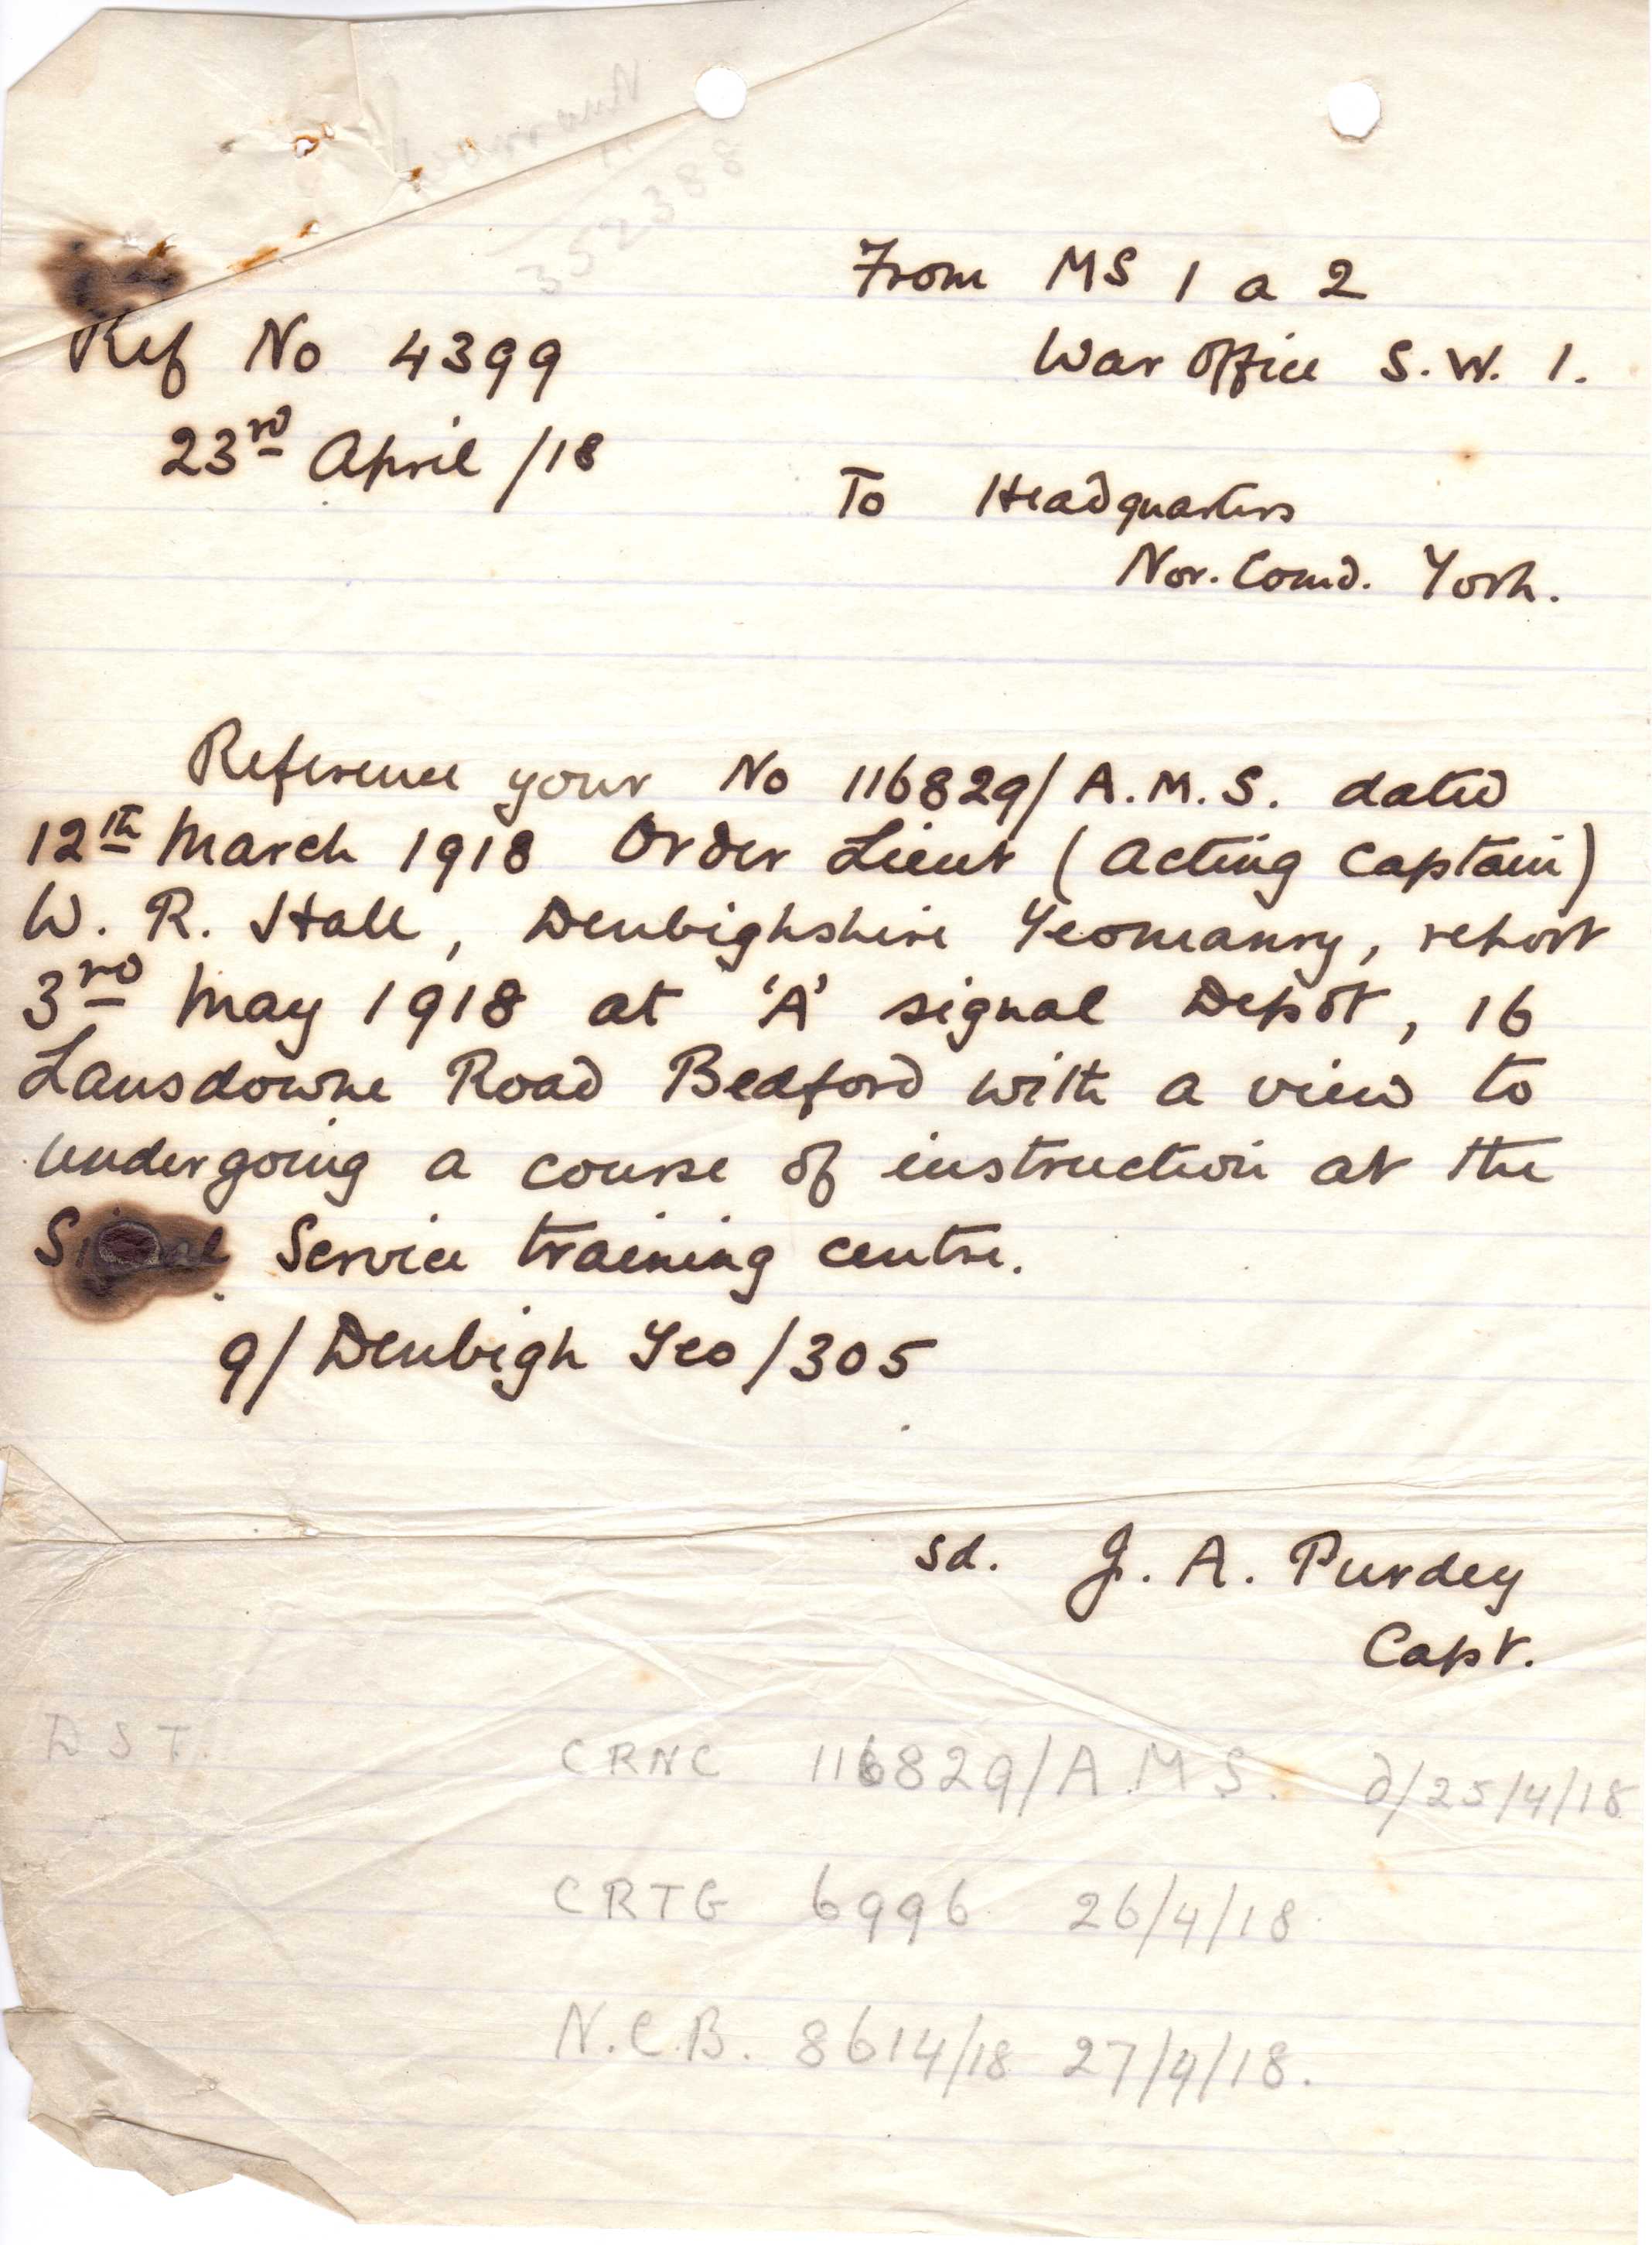 352388
From MS 1 a 2
War Office S.W. 1.
Ref No 4399
23rd April /18
To Headquarters
Nor. Comd. York.
Reference your No 116829/A.M.S. dated
12th March 1918 Order Lieut (Acting Captain)
W. R. Hall, Denbighshire Yeomanry, report
3rd May 1918 at 'A' signal Depôt, 16
Lansdowne Road Bedford with a view to
undergoing a course of instruction at the
Signal Service training centre.
9/Denbigh Yeo/305
sd. J. A. Purdey
Capt.
DST.
CRNC 116829/A.M.S. d/25/4/18
CRTG 6996 26/4/18
N.C.B. 8614/18 27/4/18.